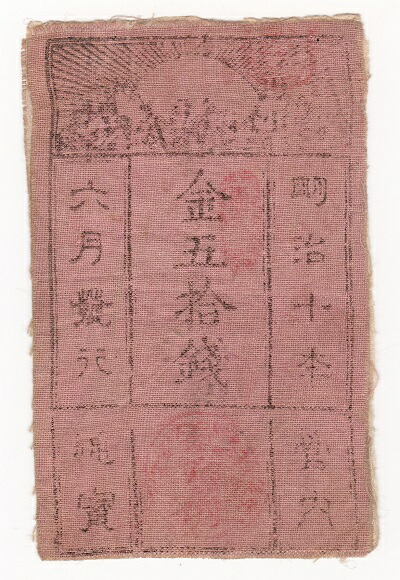 明治十年
管内
金五拾錢
六月發行
通寶